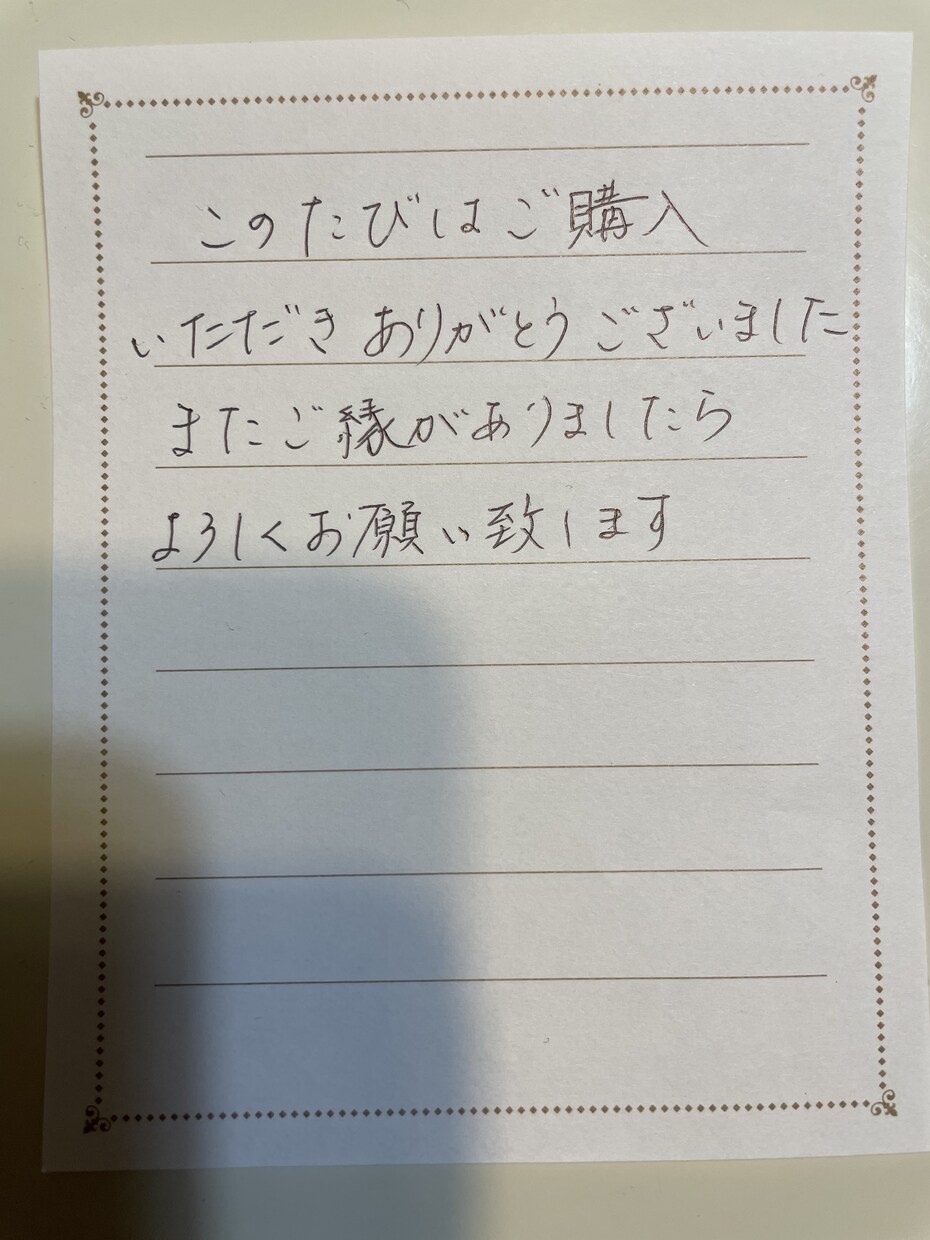 このたびはご購入
いただき ありがとう ございました
またご縁がありましたら
よろしくお願い致します